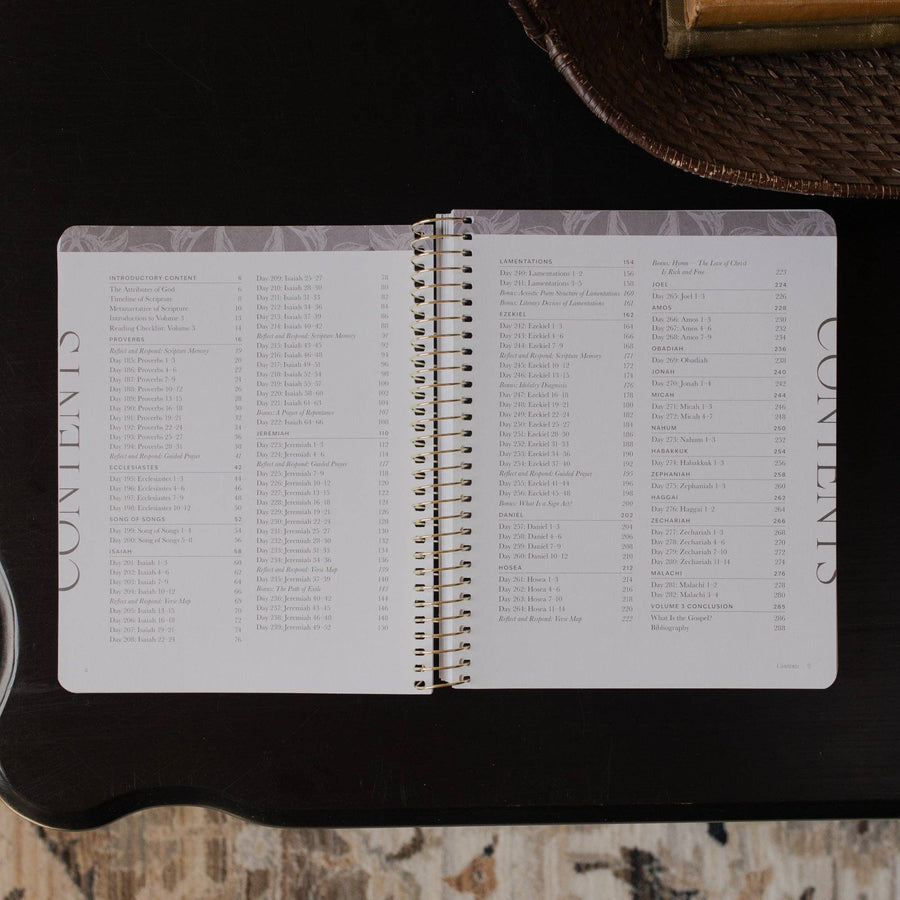 CONTENTS
INTRODUCTORY CONTENT 6
The Attributes of God 6
Timeline of Scripture 8
Metanarrative of Scripture 10
Introduction to Volume 3 12
Reading Checklist: Volume 3 14
PROVERBS 16
Reflect and Respond: Scripture Memory 19
Day 185: Proverbs 1–3 20
Day 186: Proverbs 4–6 22
Day 187: Proverbs 7–9 24
Day 188: Proverbs 10–12 26
Day 189: Proverbs 13–15 28
Day 190: Proverbs 16–18 30
Day 191: Proverbs 19–21 32
Day 192: Proverbs 22–24 34
Day 193: Proverbs 25–27 36
Day 194: Proverbs 28–31 38
Reflect and Respond: Guided Prayer 41
ECCLESIASTES 42
Day 195: Ecclesiastes 1–3 44
Day 196: Ecclesiastes 4–6 46
Day 197: Ecclesiastes 7–9 48
Day 198: Ecclesiastes 10–12 50
SONG OF SONGS 52
Day 199: Song of Songs 1–4 54
Day 200: Song of Songs 5–8 56
ISAIAH 58
Day 201: Isaiah 1–3 60
Day 202: Isaiah 4–6 62
Day 203: Isaiah 7–9 64
Day 204: Isaiah 10–12 66
Reflect and Respond: Verse Map 69
Day 205: Isaiah 13–15 70
Day 206: Isaiah 16–18 72
Day 207: Isaiah 19–21 74
Day 208: Isaiah 22–24 76
Day 209: Isaiah 25–27 78
Day 210: Isaiah 28–30 80
Day 211: Isaiah 31–33 82
Day 212: Isaiah 34–36 84
Day 213: Isaiah 37–39 86
Day 214: Isaiah 40–42 88
Reflect and Respond: Scripture Memory 91
Day 215: Isaiah 43–45 92
Day 216: Isaiah 46–48 94
Day 217: Isaiah 49–51 96
Day 218: Isaiah 52–54 98
Day 219: Isaiah 55–57 100
Day 220: Isaiah 58–60 102
Day 221: Isaiah 61–63 104
Bonus: A Prayer of Repentance 107
Day 222: Isaiah 64–66 108
JEREMIAH 110
Day 223: Jeremiah 1–3 112
Day 224: Jeremiah 4–6 114
Reflect and Respond: Guided Prayer 117
Day 225: Jeremiah 7–9 118
Day 226: Jeremiah 10–12 120
Day 227: Jeremiah 13–15 122
Day 228: Jeremiah 16–18 124
Day 229: Jeremiah 19–21 126
Day 230: Jeremiah 22–24 128
Day 231: Jeremiah 25–27 130
Day 232: Jeremiah 28–30 132
Day 233: Jeremiah 31–33 134
Day 234: Jeremiah 34–36 136
Reflect and Respond: Verse Map 139
Day 235: Jeremiah 37–39 140
Bonus: The Path of Exile 143
Day 236: Jeremiah 40–42 144
Day 237: Jeremiah 43–45 146
Day 238: Jeremiah 46–48 148
Day 239: Jeremiah 49–52 150
LAMENTATIONS 154
Day 240: Lamentations 1–2 156
Day 241: Lamentations 3–5 158
Bonus: Acrostic Poem Structure of Lamentations 160
Bonus: Literary Devices of Lamentations 161
EZEKIEL 162
Day 242: Ezekiel 1–3 164
Day 243: Ezekiel 4–6 166
Day 244: Ezekiel 7–9 168
Reflect and Respond: Scripture Memory 171
Day 245: Ezekiel 10–12 172
Day 246: Ezekiel 13–15 174
Bonus: Idolatry Diagnosis 176
Day 247: Ezekiel 16–18 178
Day 248: Ezekiel 19–21 180
Day 249: Ezekiel 22–24 182
Day 250: Ezekiel 25–27 184
Day 251: Ezekiel 28–30 186
Day 252: Ezekiel 31–33 188
Day 253: Ezekiel 34–36 190
Day 254: Ezekiel 37–40 192
Reflect and Respond: Guided Prayer 195
Day 255: Ezekiel 41–44 196
Day 256: Ezekiel 45–48 198
Bonus: What Is a Sign Act? 200
DANIEL 202
Day 257: Daniel 1–3 204
Day 258: Daniel 4–6 206
Day 259: Daniel 7–9 208
Day 260: Daniel 10–12 210
HOSEA 212
Day 261: Hosea 1–3 214
Day 262: Hosea 4–6 216
Day 263: Hosea 7–10 218
Day 264: Hosea 11–14 220
Reflect and Respond: Verse Map 222
Bonus: Hymn — The Law of Christ
Is Rich and Free 223
JOEL 224
Day 265: Joel 1–3 226
AMOS 228
Day 266: Amos 1–3 230
Day 267: Amos 4–6 232
Day 268: Amos 7–9 234
OBADIAH 236
Day 269: Obadiah 238
JONAH 240
Day 270: Jonah 1–4 242
MICAH 244
Day 271: Micah 1–3 246
Day 272: Micah 4–7 248
NAHUM 250
Day 273: Nahum 1–3 252
HABAKKUK 254
Day 274: Habakkuk 1–3 256
ZEPHANIAH 258
Day 275: Zephaniah 1–3 260
HAGGAI 262
Day 276: Haggai 1–2 264
ZECHARIAH 266
Day 277: Zechariah 1–3 268
Day 278: Zechariah 4–6 270
Day 279: Zechariah 7–10 272
Day 280: Zechariah 11–14 274
MALACHI 276
Day 281: Malachi 1–2 278
Day 282: Malachi 3–4 280
VOLUME 3 CONCLUSION 285
What Is the Gospel? 286
Bibliography 288
CONTENTS
4
Contents 5